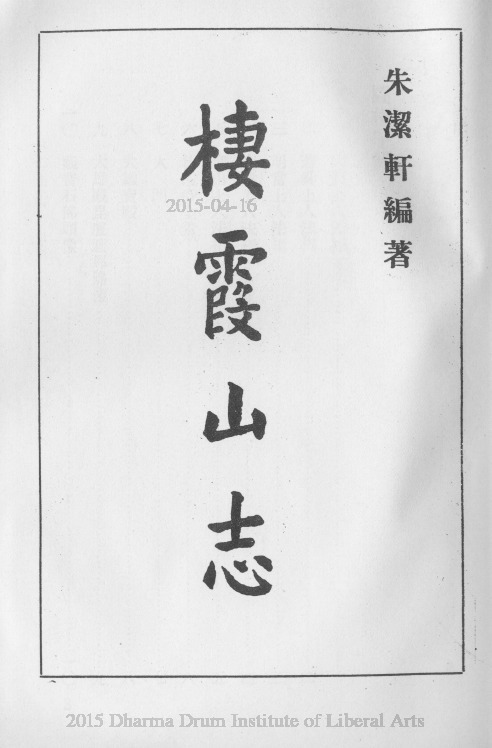 朱潔軒編著
棲霞山志
2015-04-16
2015 Dharma Drum Institute of Liberal Arts